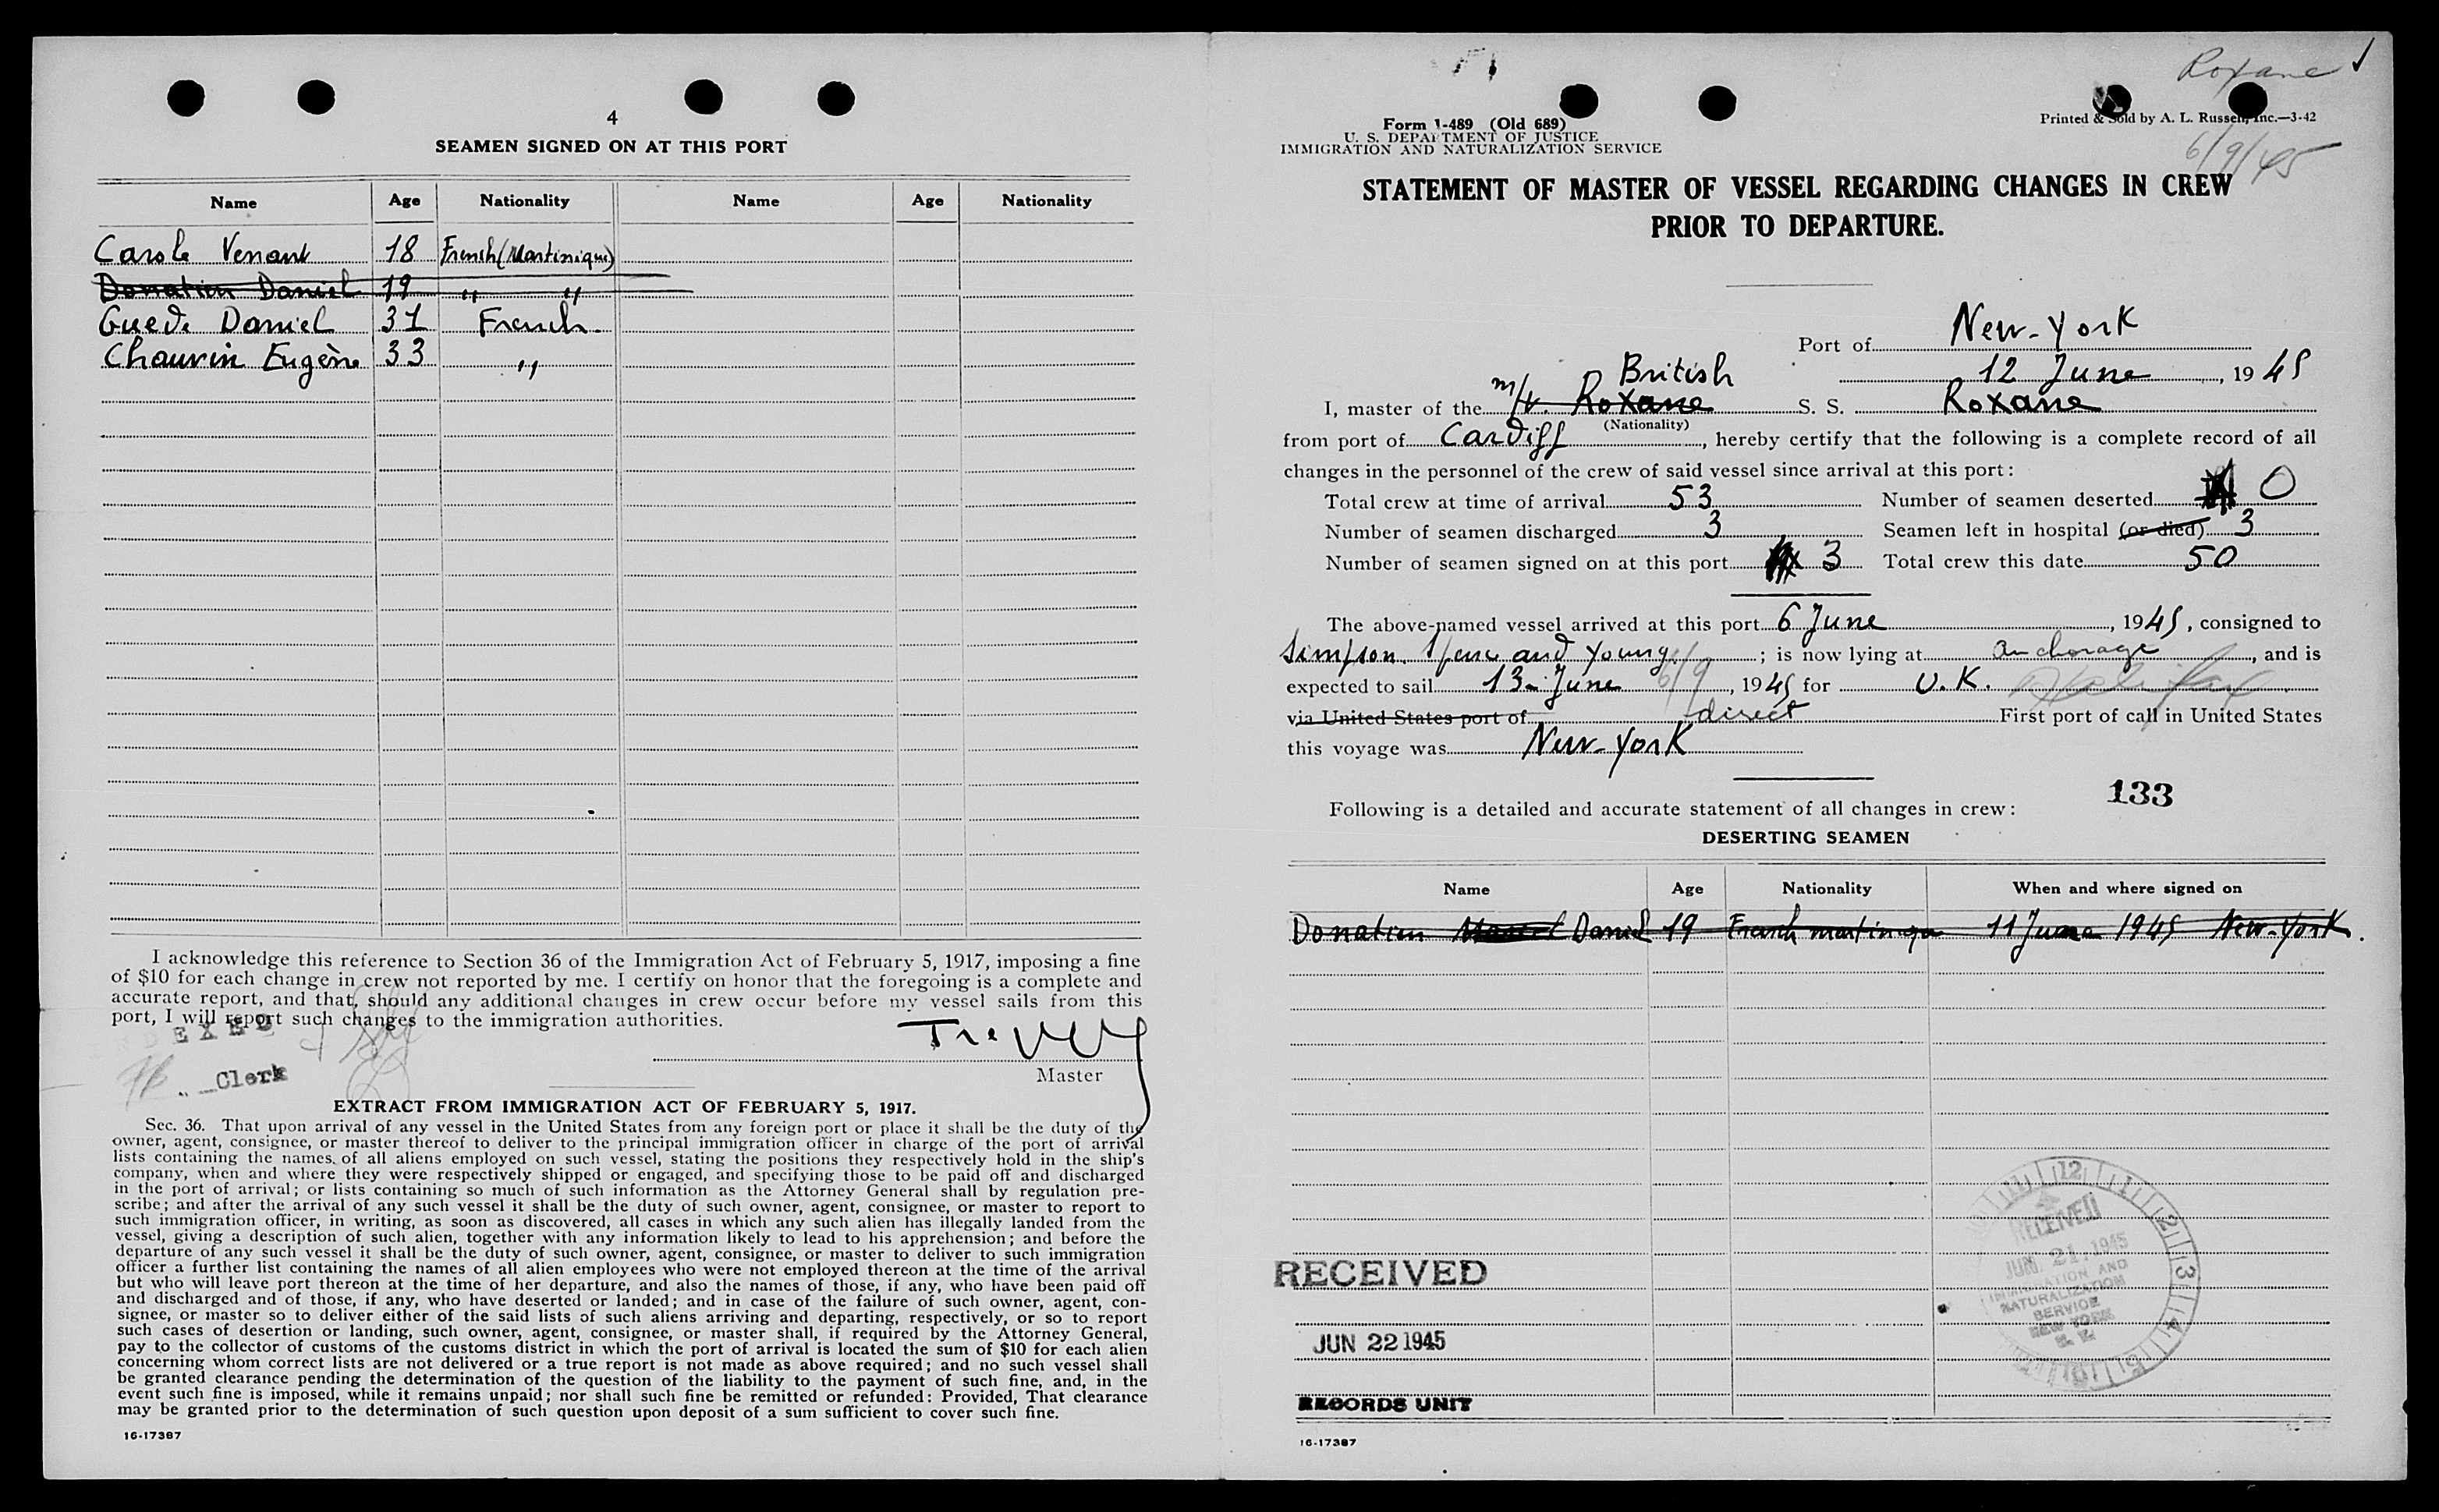 4
SEAMEN SIGNED ON AT THIS PORT
Name Age Nationality Name Age Nationality
Carole Venant 18 French (Martinique)
Donatien Daniel 19 " "
Guede Daniel 31 French
Chauvin Eugène 33 "
I acknowledge this reference to Section 36 of the Immigration Act of February 5, 1917, imposing a fine
of $10 for each change in crew not reported by me. I certify on honor that the foregoing is a complete and
accurate report, and that, should any additional changes in crew occur before my vessel sails from this
port, I will report such changes to the immigration authorities.
Clerk
Master
EXTRACT FROM IMMIGRATION ACT OF FEBRUARY 5, 1917.
Sec. 36. That upon arrival of any vessel in the United States from any foreign port or place it shall be the duty of the
owner, agent, consignee, or master thereof to deliver to the principal immigration officer in charge of the port of arrival
lists containing the names of all aliens employed on such vessel, stating the positions they respectively hold in the ship's
company, when and where they were respectively shipped or engaged, and specifying those to be paid off and discharged
in the port of arrival; or lists containing so much of such information as the Attorney General shall by regulation pre-
scribe; and after the arrival of any such vessel it shall be the duty of such owner, agent, consignee, or master to report to
such immigration officer, in writing, as soon as discovered, all cases in which any such alien has illegally landed from the
vessel, giving a description of such alien, together with any information likely to lead to his apprehension; and before the
departure of any such vessel it shall be the duty of such owner, agent, consignee, or master to deliver to such immigration
officer a further list containing the names of all alien employees who were not employed thereon at the time of the arrival
but who will leave port thereon at the time of her departure, and also the names of those, if any, who have been paid off
and discharged and of those, if any, who have deserted or landed; and in case of the failure of such owner, agent, con-
signee, or master so to deliver either of the said lists of such aliens arriving and departing, respectively, or so to report
such cases of desertion or landing, such owner, agent, consignee, or master shall, if required by the Attorney General,
pay to the collector of customs of the customs district in which the port of arrival is located the sum of $10 for each alien
concerning whom correct lists are not delivered or a true report is not made as above required; and no such vessel shall
be granted clearance pending the determination of the question of the liability to the payment of such fine, and, in the
event such fine is imposed, while it remains unpaid; nor shall such fine be remitted or refunded: Provided, That clearance
may be granted prior to the determination of such question upon deposit of a sum sufficient to cover such fine.
16-17387
Roxane
Form 1-489 (Old 689)
U. S. DEPARTMENT OF JUSTICE
IMMIGRATION AND NATURALIZATION SERVICE
Printed & Sold by A. L. Russell, Inc.—3-42
6/9/45
STATEMENT OF MASTER OF VESSEL REGARDING CHANGES IN CREW
PRIOR TO DEPARTURE.
Port of New-York
12 June, 1945
British
I, master of the m/v. Roxane S. S. Roxane
(Nationality)
from port of Cardiff, hereby certify that the following is a complete record of all
changes in the personnel of the crew of said vessel since arrival at this port:
Total crew at time of arrival 53 Number of seamen deserted 0
Number of seamen discharged 3 Seamen left in hospital (or died) 3
Number of seamen signed on at this port 3 Total crew this date 50
The above-named vessel arrived at this port 6 June, 1945, consigned to
Simpson Spence and Young; is now lying at anchorage, and is
expected to sail 13 June 6/9, 1945 for U.K. Halifax
via United States port of direct First port of call in United States
this voyage was New-York
Following is a detailed and accurate statement of all changes in crew:
133
DESERTING SEAMEN
Name Age Nationality When and where signed on
Donatien Daniel 19 French martinique 11 June 1945 New-York.
RECEIVED
JUN 22 1945
RECORDS UNIT
RECEIVED
JUN. 21. 1945
IMMIGRATION AND
NATURALIZATION
SERVICE
NEW YORK
N. Y.
16-17387